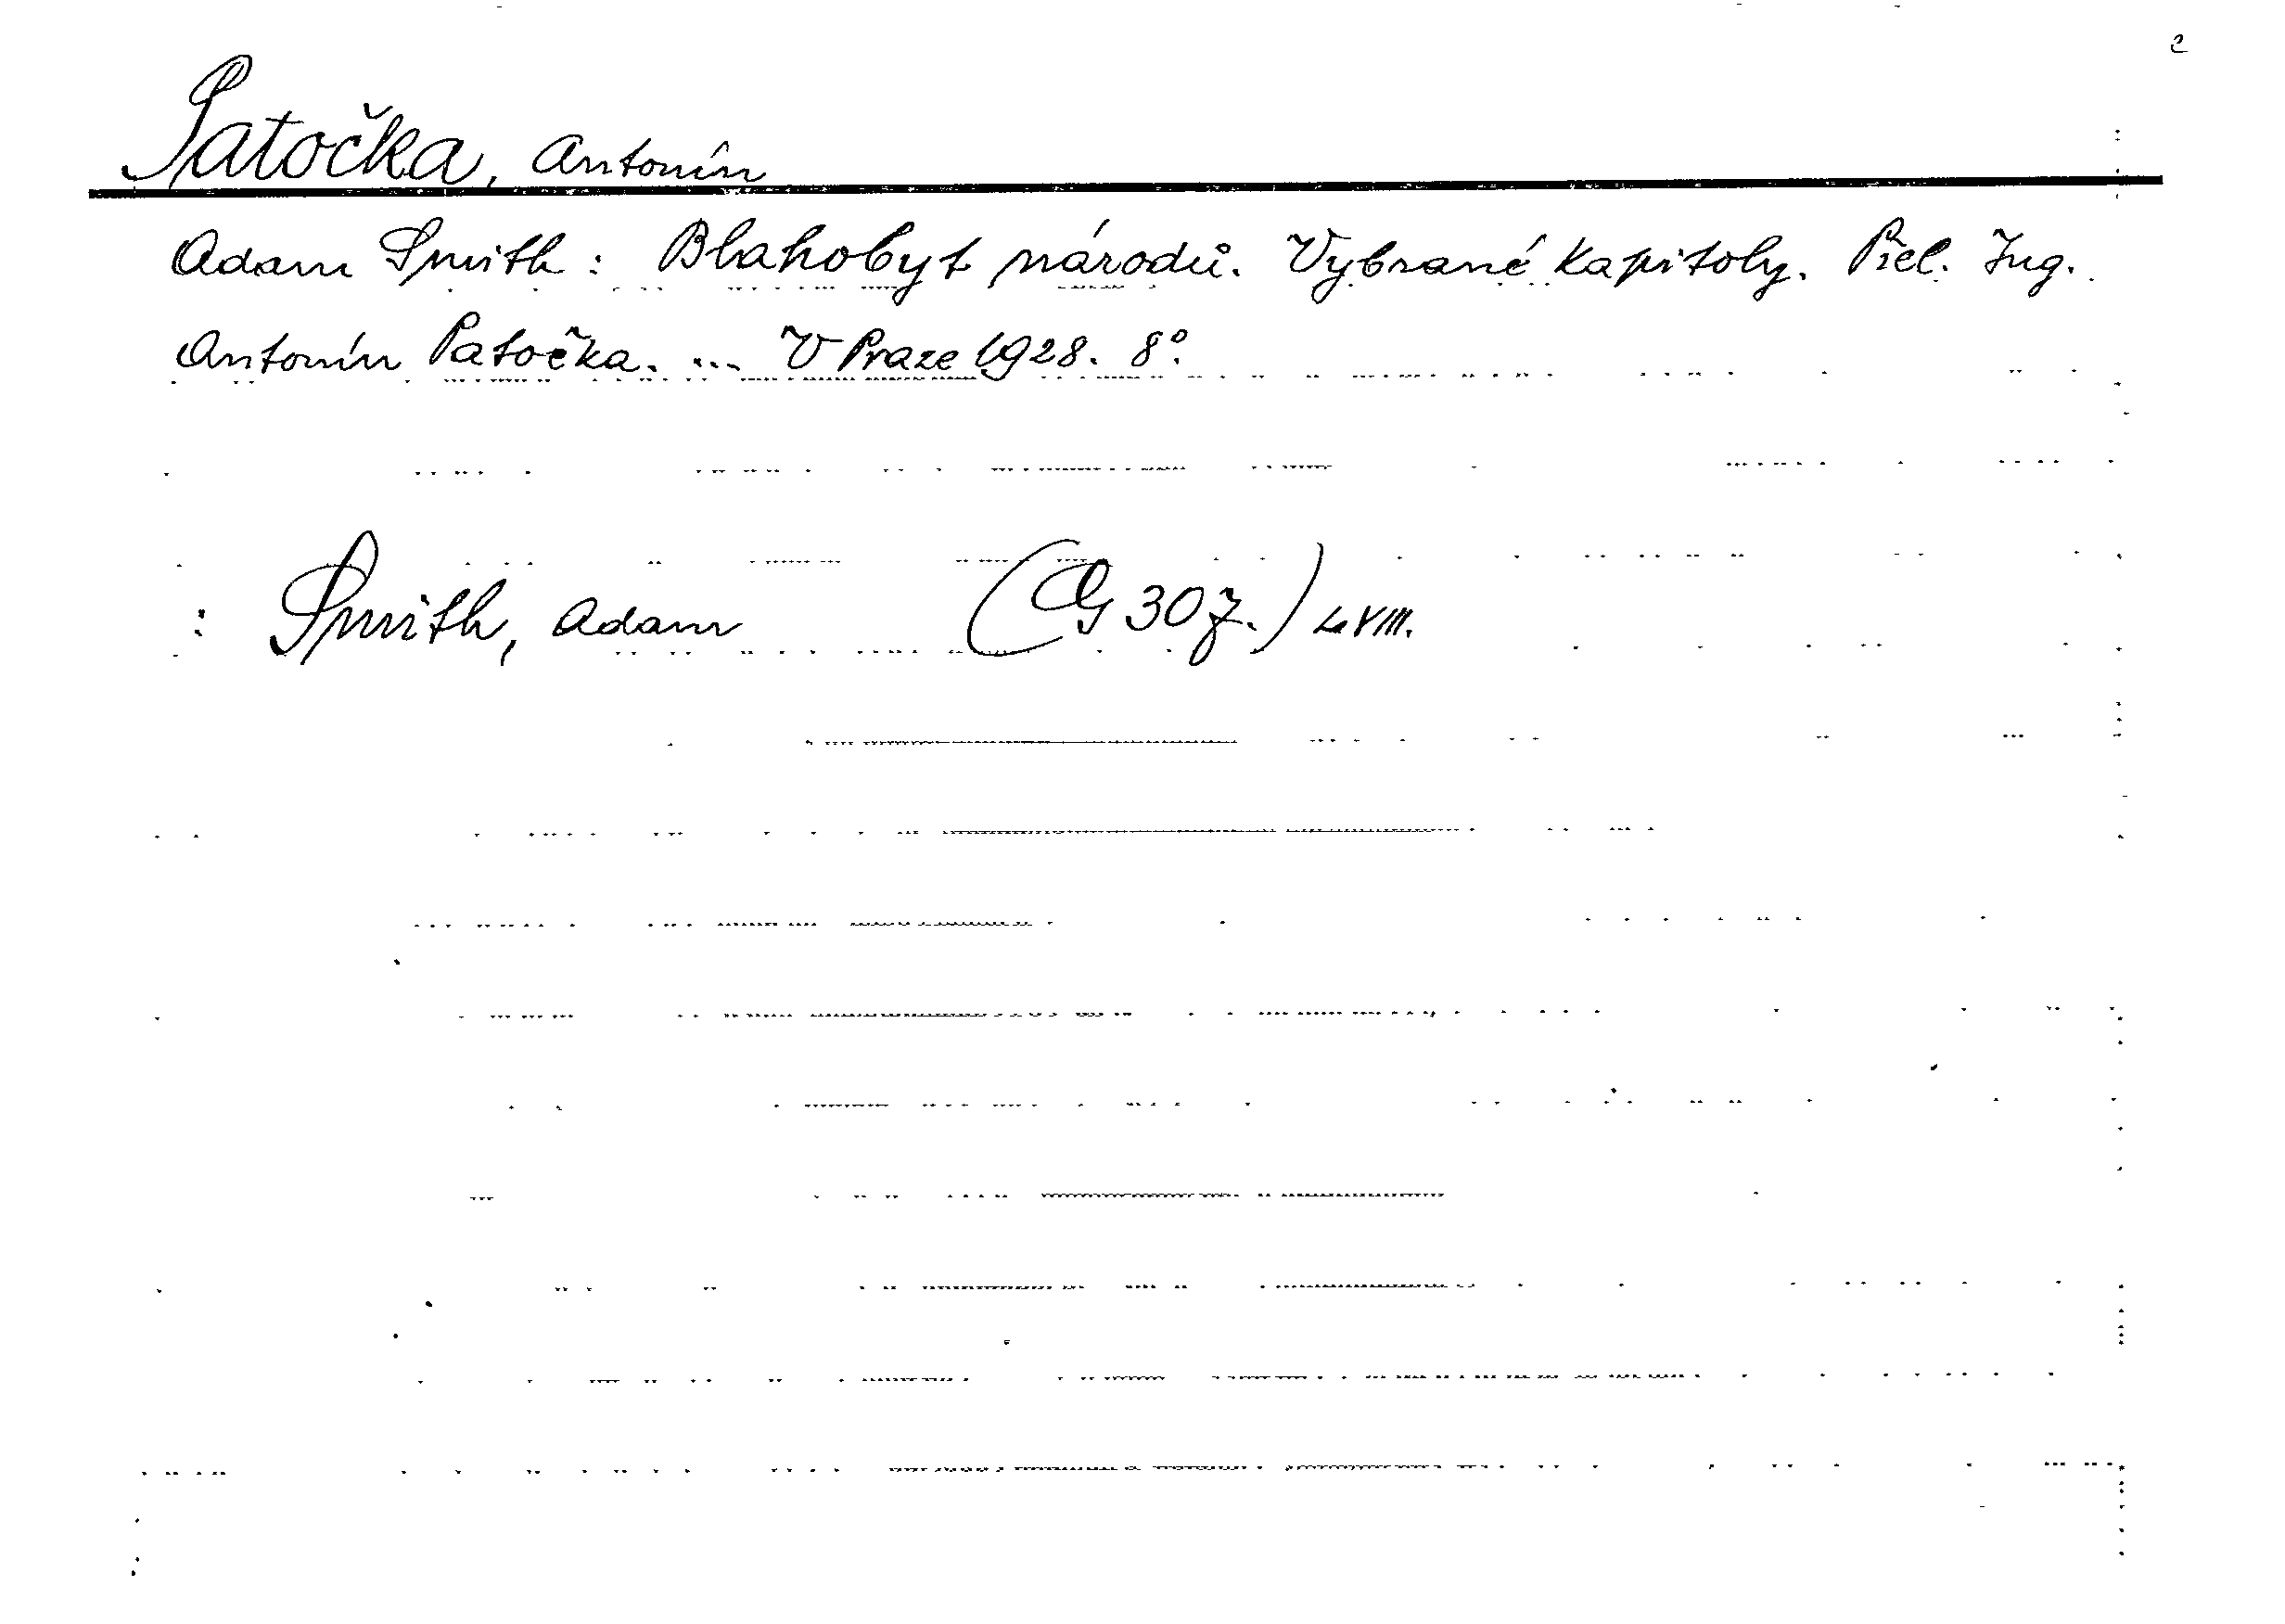 c
Patočka, Antonín
Adam Smith: Blahobyt národů. Vybrané kapitoly. Přel. Ing.
Antonín Patočka. ... V Praze 1928. 8°.
: Smith, Adam (G 307.) VIII.